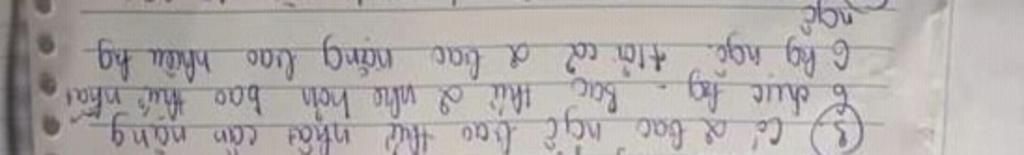 ③ Có 2 bao ngô bao thứ nhất cân nặng
6 chục kg. Bao thứ 2 nhẹ hơn bao thứ nhất
6 kg ngô. Hỏi cả 2 bao nặng bao nhiêu kg
ngô